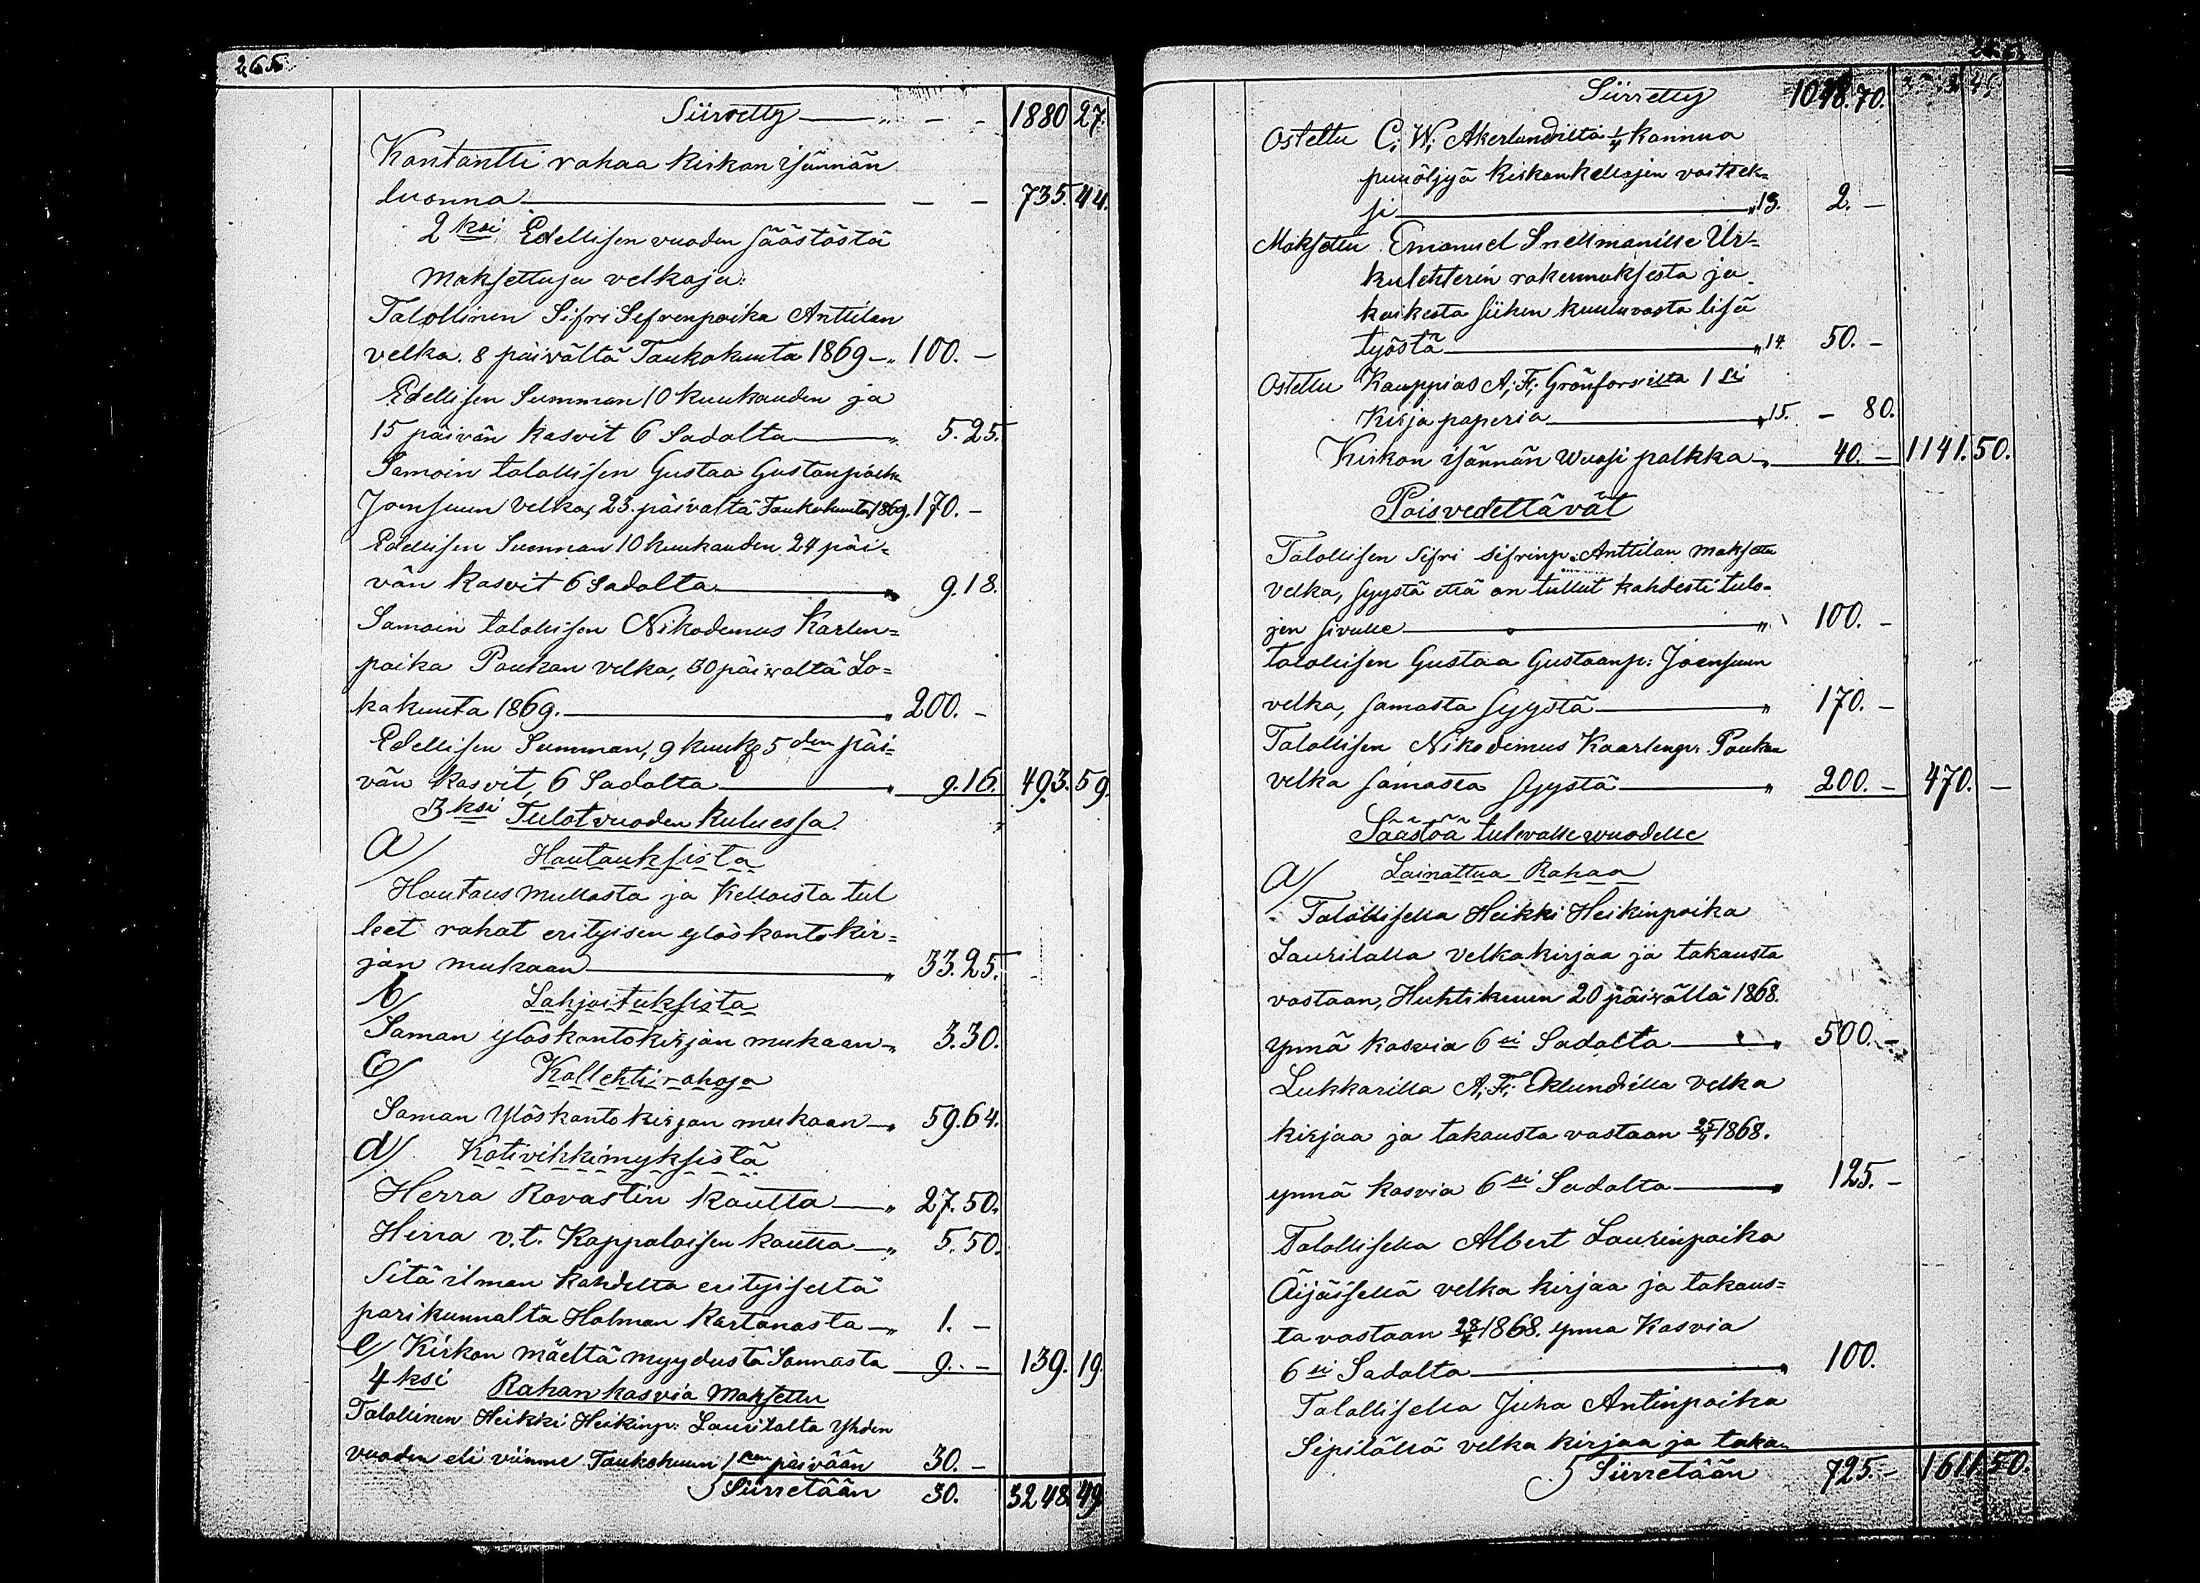 265.
Siirretty — „ — — 1880 27.
Kontantti rahaa kirkon isännän
luonna — — — 735. 44.
2ksi Edellisen vuoden säästöstä
maksettuja velkoja:
Talollinen Sifri Sefrenpoika Anttilan
velka. 8 päivältä Toukokuuta 1869 — „ 100. —
Edellisen Summan 10 kuukauden ja
15 päivän kasvit 6 Sadalta — „ 5.25.
Samoin talollisen Gustaa Gustanpoik.
Joensuun velka, 23. päivältä Toukokuuta 1869. 170. —
Edellisen Summan 10 kuukauden 24 päi=
vän kasvit 6 Sadalta — „ 9.18.
Samoin talollisen Nikodemus Karlen=
poika Poukan velka, 30 päivältä Lo=
kakuuta 1869. — „ 200. —
Edellisen Summan, 9 kuuk. 5den päi=
vän kasvit, 6 Sadalta — „ 9.16. 493. 59.
3ksi Tulot vuoden kuluessa.
a/ Hautauksista
Hautaus mullasta ja kelloista tul
leet rahat erityisen ylöskantokir=
jan mukaan — „ 33.25.
b/ Lahjoituksista
Saman ylöskantokirjan mukaan — „ 3.30.
c/ Kollehti rahoja
Saman Ylöskanto kirjan mukaan — „ 59.64.
d/ Kotivihkimyksistä
Herra Rovastin kautta — „ 27.50.
Herra v.t. Kappalaisen kautta — „ 5.50.
Sitä ilman kahdelta erityiseltä
parikunnalta Holman kartanosta — „ 1. —
e/ Kirkon mäeltä myydystä Sannasta — 9. — 139. 19.
4ksi Rahan kasvia Maksettu
Talollinen Heikki Heikinp: Laurilalta Yhden
vuoden eli viimme Toukokuun 1sen päivään 30. —
Siirretään 30. 3248. 49.
Siirretty 1048.70.
Ostettu C; W; Akerlundilta 1/4 kannua
puuöljyä Kirkonkellojen voiteek=
si — „ 13. 2. —
Maksettu Emanuel Snellmanille Ur=
kulehterin rakennuksesta ja
kaikesta siihen kuuluvasta lisä
työstä — „ 14. 50. —
Ostettu Kauppias A; F; Grönforsilta 1 si
Kirja paperia — „ 15. — 80.
Kirkon isännän Wuosi palkka — „ 40. — 1141. 50.
Poisvedettävät
Talollisen Sifri Sifrinp: Anttilan maksettu
Velka, syystä että on tullut kahdesti tulo=
jen sivulle — „ 100. —
talollisen Gustaa Gustaanp: Joensuun
velka, samasta syystä — „ 170. —
Talollisen Nikodemus Kaarlenp: Poukan
velka samasta syystä — „ 200. — 470. —
Säästöä tulevalle wuodelle
a/ Lainattua Rahaa
Talollisella Heikki Heikinpoika
Laurilalla velkakirjaa ja takausta
vastaan, Huhtikuun 20 päivällä 1868.
ynnä kasvia 6 si Sadalta — „ 500. —
Lukkarilla A; F; Eklundilla velka
kirjaa ja takausta vastaan 1868.
ynnä kasvia 6 si Sadalta — „ 125. —
Talollisella Albert Laurinpoika
Äijäisellä velka kirjaa ja takaus=
ta vastaan 1868. ynna Kasvia
6 si Sadalta — „ 100.
Talollisella Juha Antinpoika
Sipilällä velka kirjaa ja taka=
Siirretään 725. — 1611. 50.